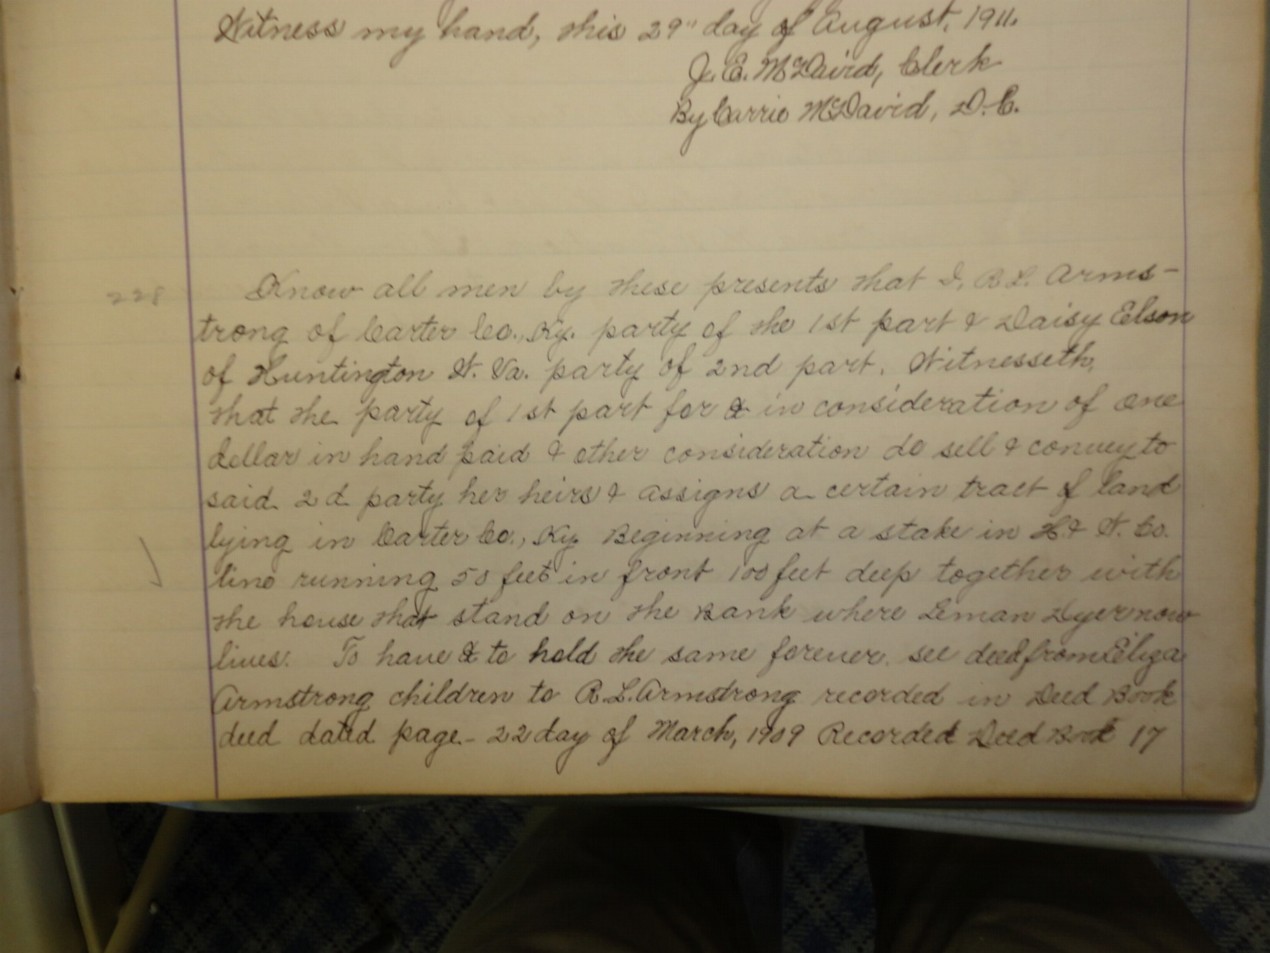 Witness my hand, this 29" day of August, 1911.
J. E. McDavid, Clerk
By Carrie McDavid, D. C.
228
Know all men by these presents that I, R L. Arms-
trong of Carter Co., Ky. party of the 1st part & Daisy Eelson
of Huntington W. Va. party of 2nd part. Witnesseth,
that the party of 1st part for & in consideration of one
dollar in hand paid & other consideration do sell & convey to
said 2d party her heirs & assigns a certain tract of land
lying in Carter Co., Ky Beginning at a stake in H & W. Co.
line running 50 feet in front 100 feet deep together with
the house that stand on the Bank where Leman Dyer now
lives. To have & to hold the same forever. see deed from Eliza
Armstrong children to R. L. Armstrong recorded in Deed Book
deed dated page - 22 day of March, 1909 Recorded Deed Book 17